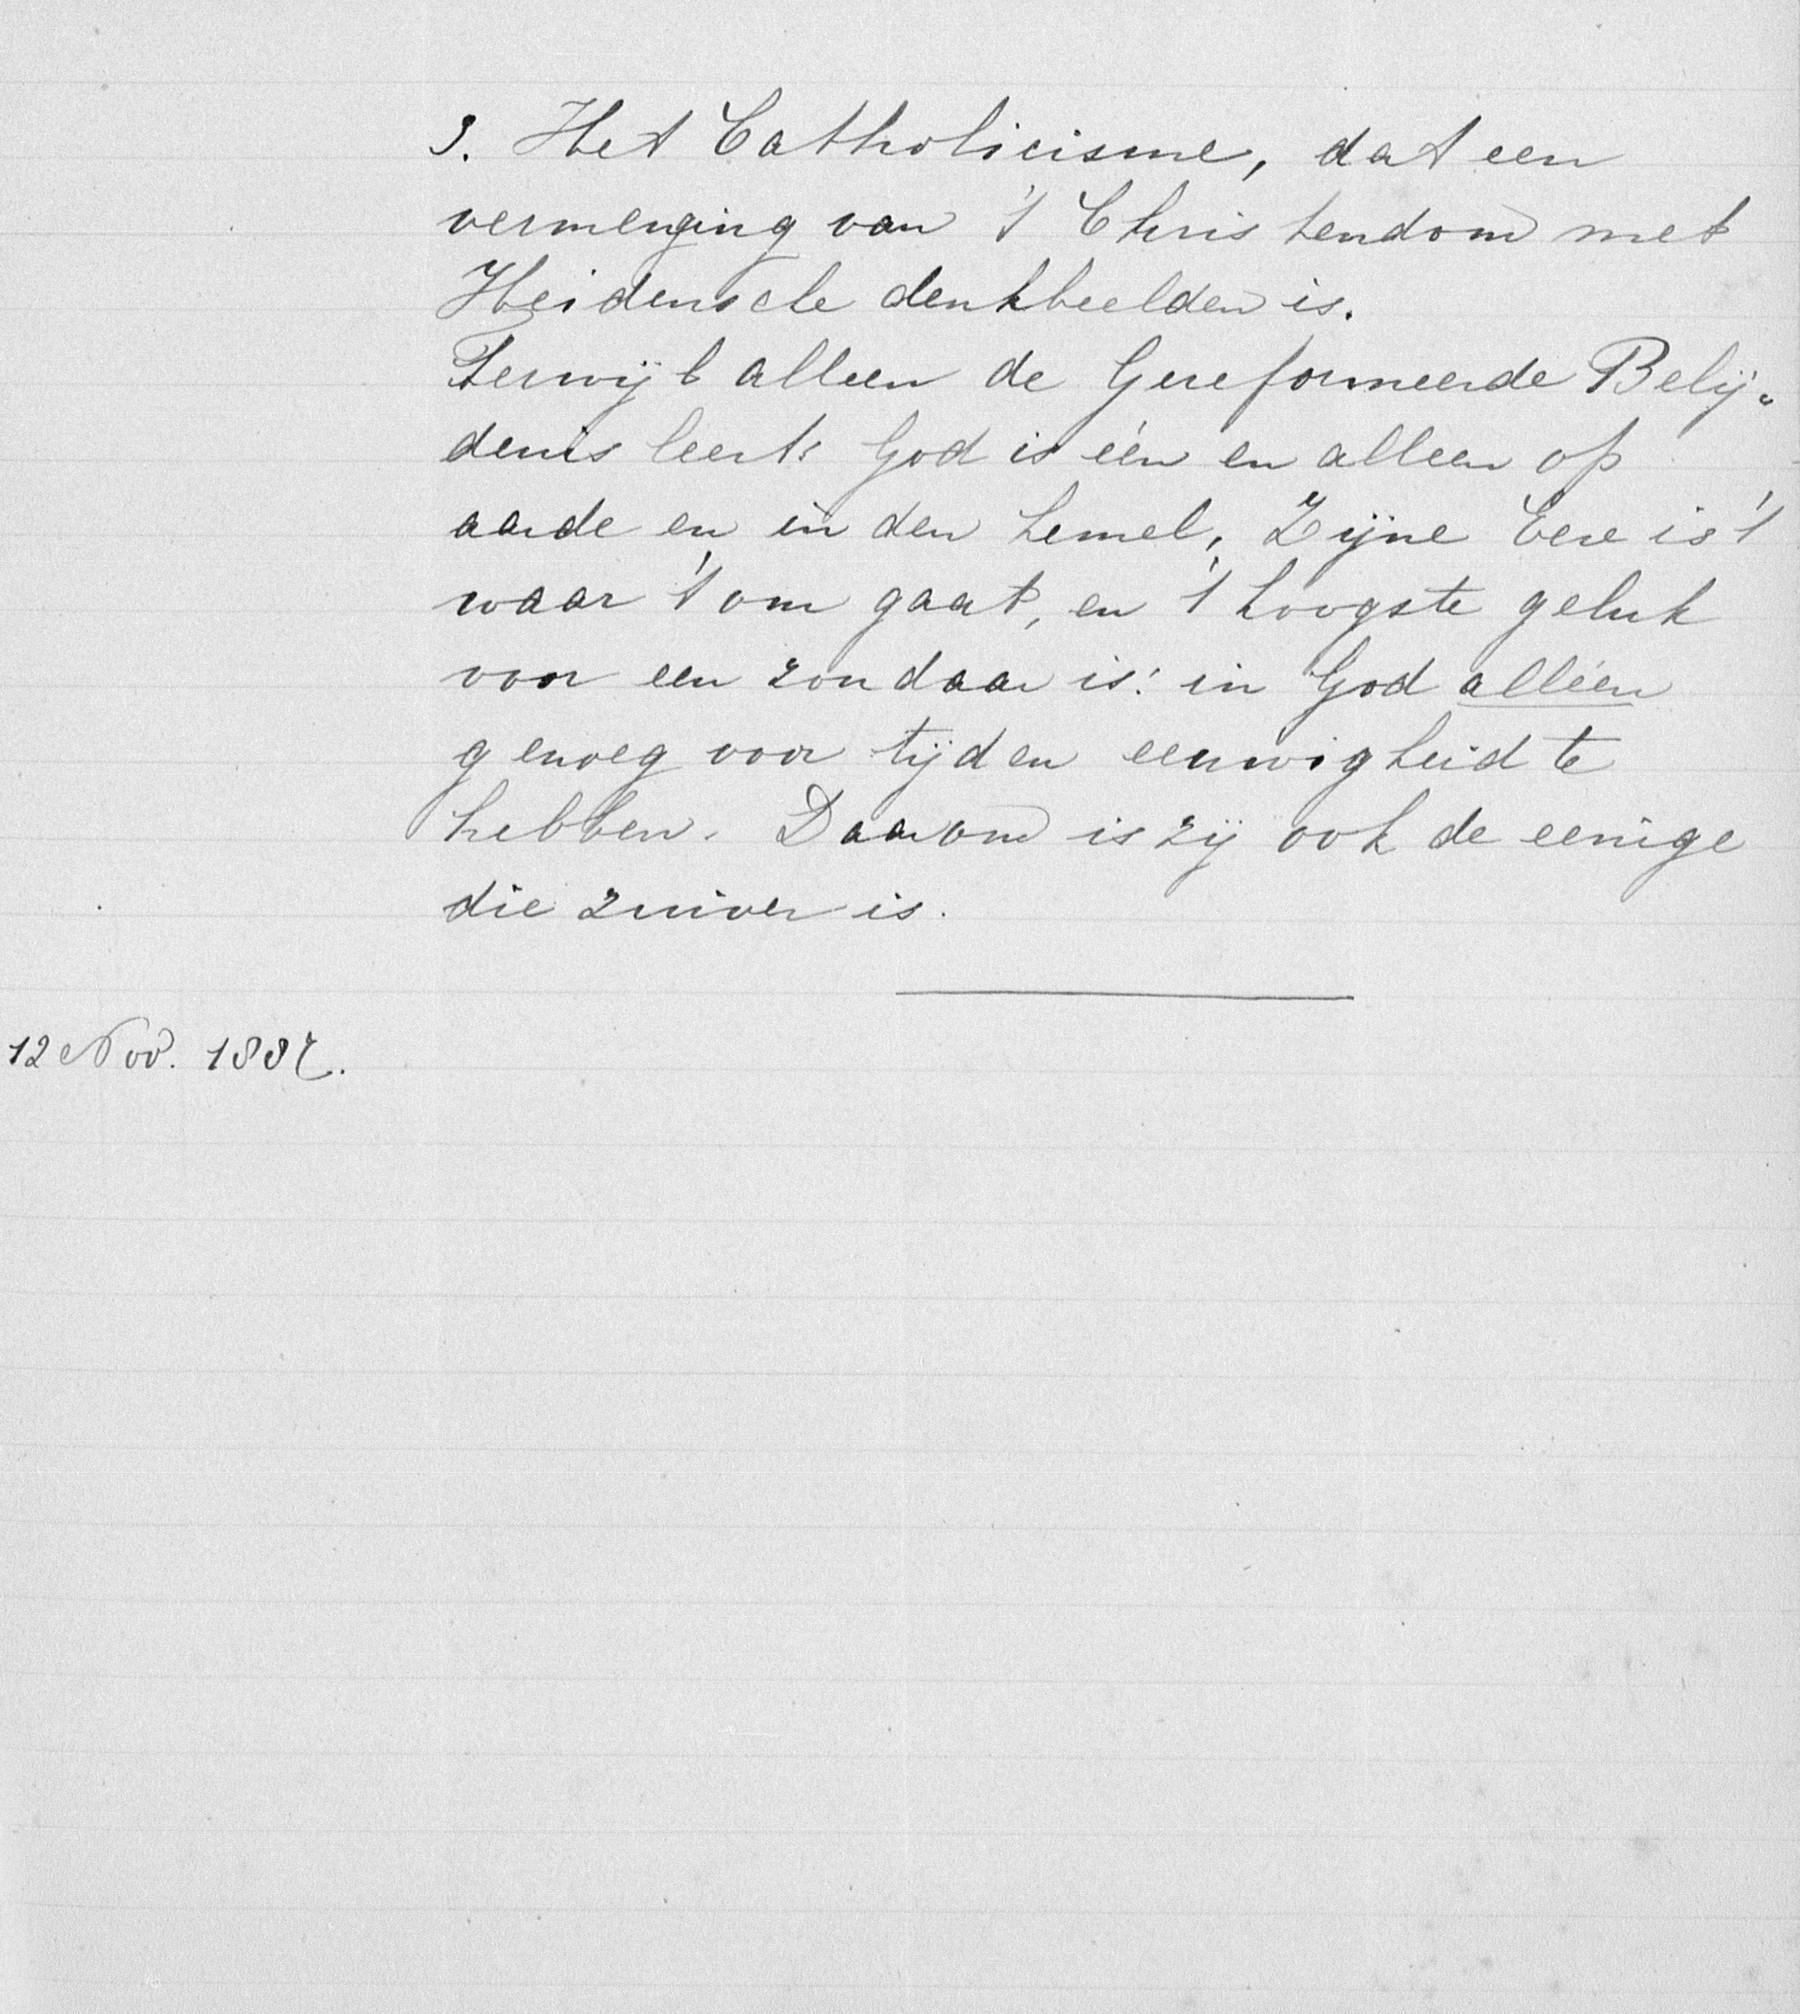 3. Het Catholicisme, dat een
vermenging van 't Christendom met
Heidensche denkbeelden is.
Terwijl alleen de Gereformeerde Belij-
denis leert: God is één en alleen op
aarde en in den hemel, Zijne Eere is 't
waar 't om gaat, en 't hoogste geluk
voor een zondaar is: in God alléen
genoeg voor tijd en eeuwigheid te
hebben. Daarom is zij ook de eenige
die zuiver is.
12 Nov. 1887.